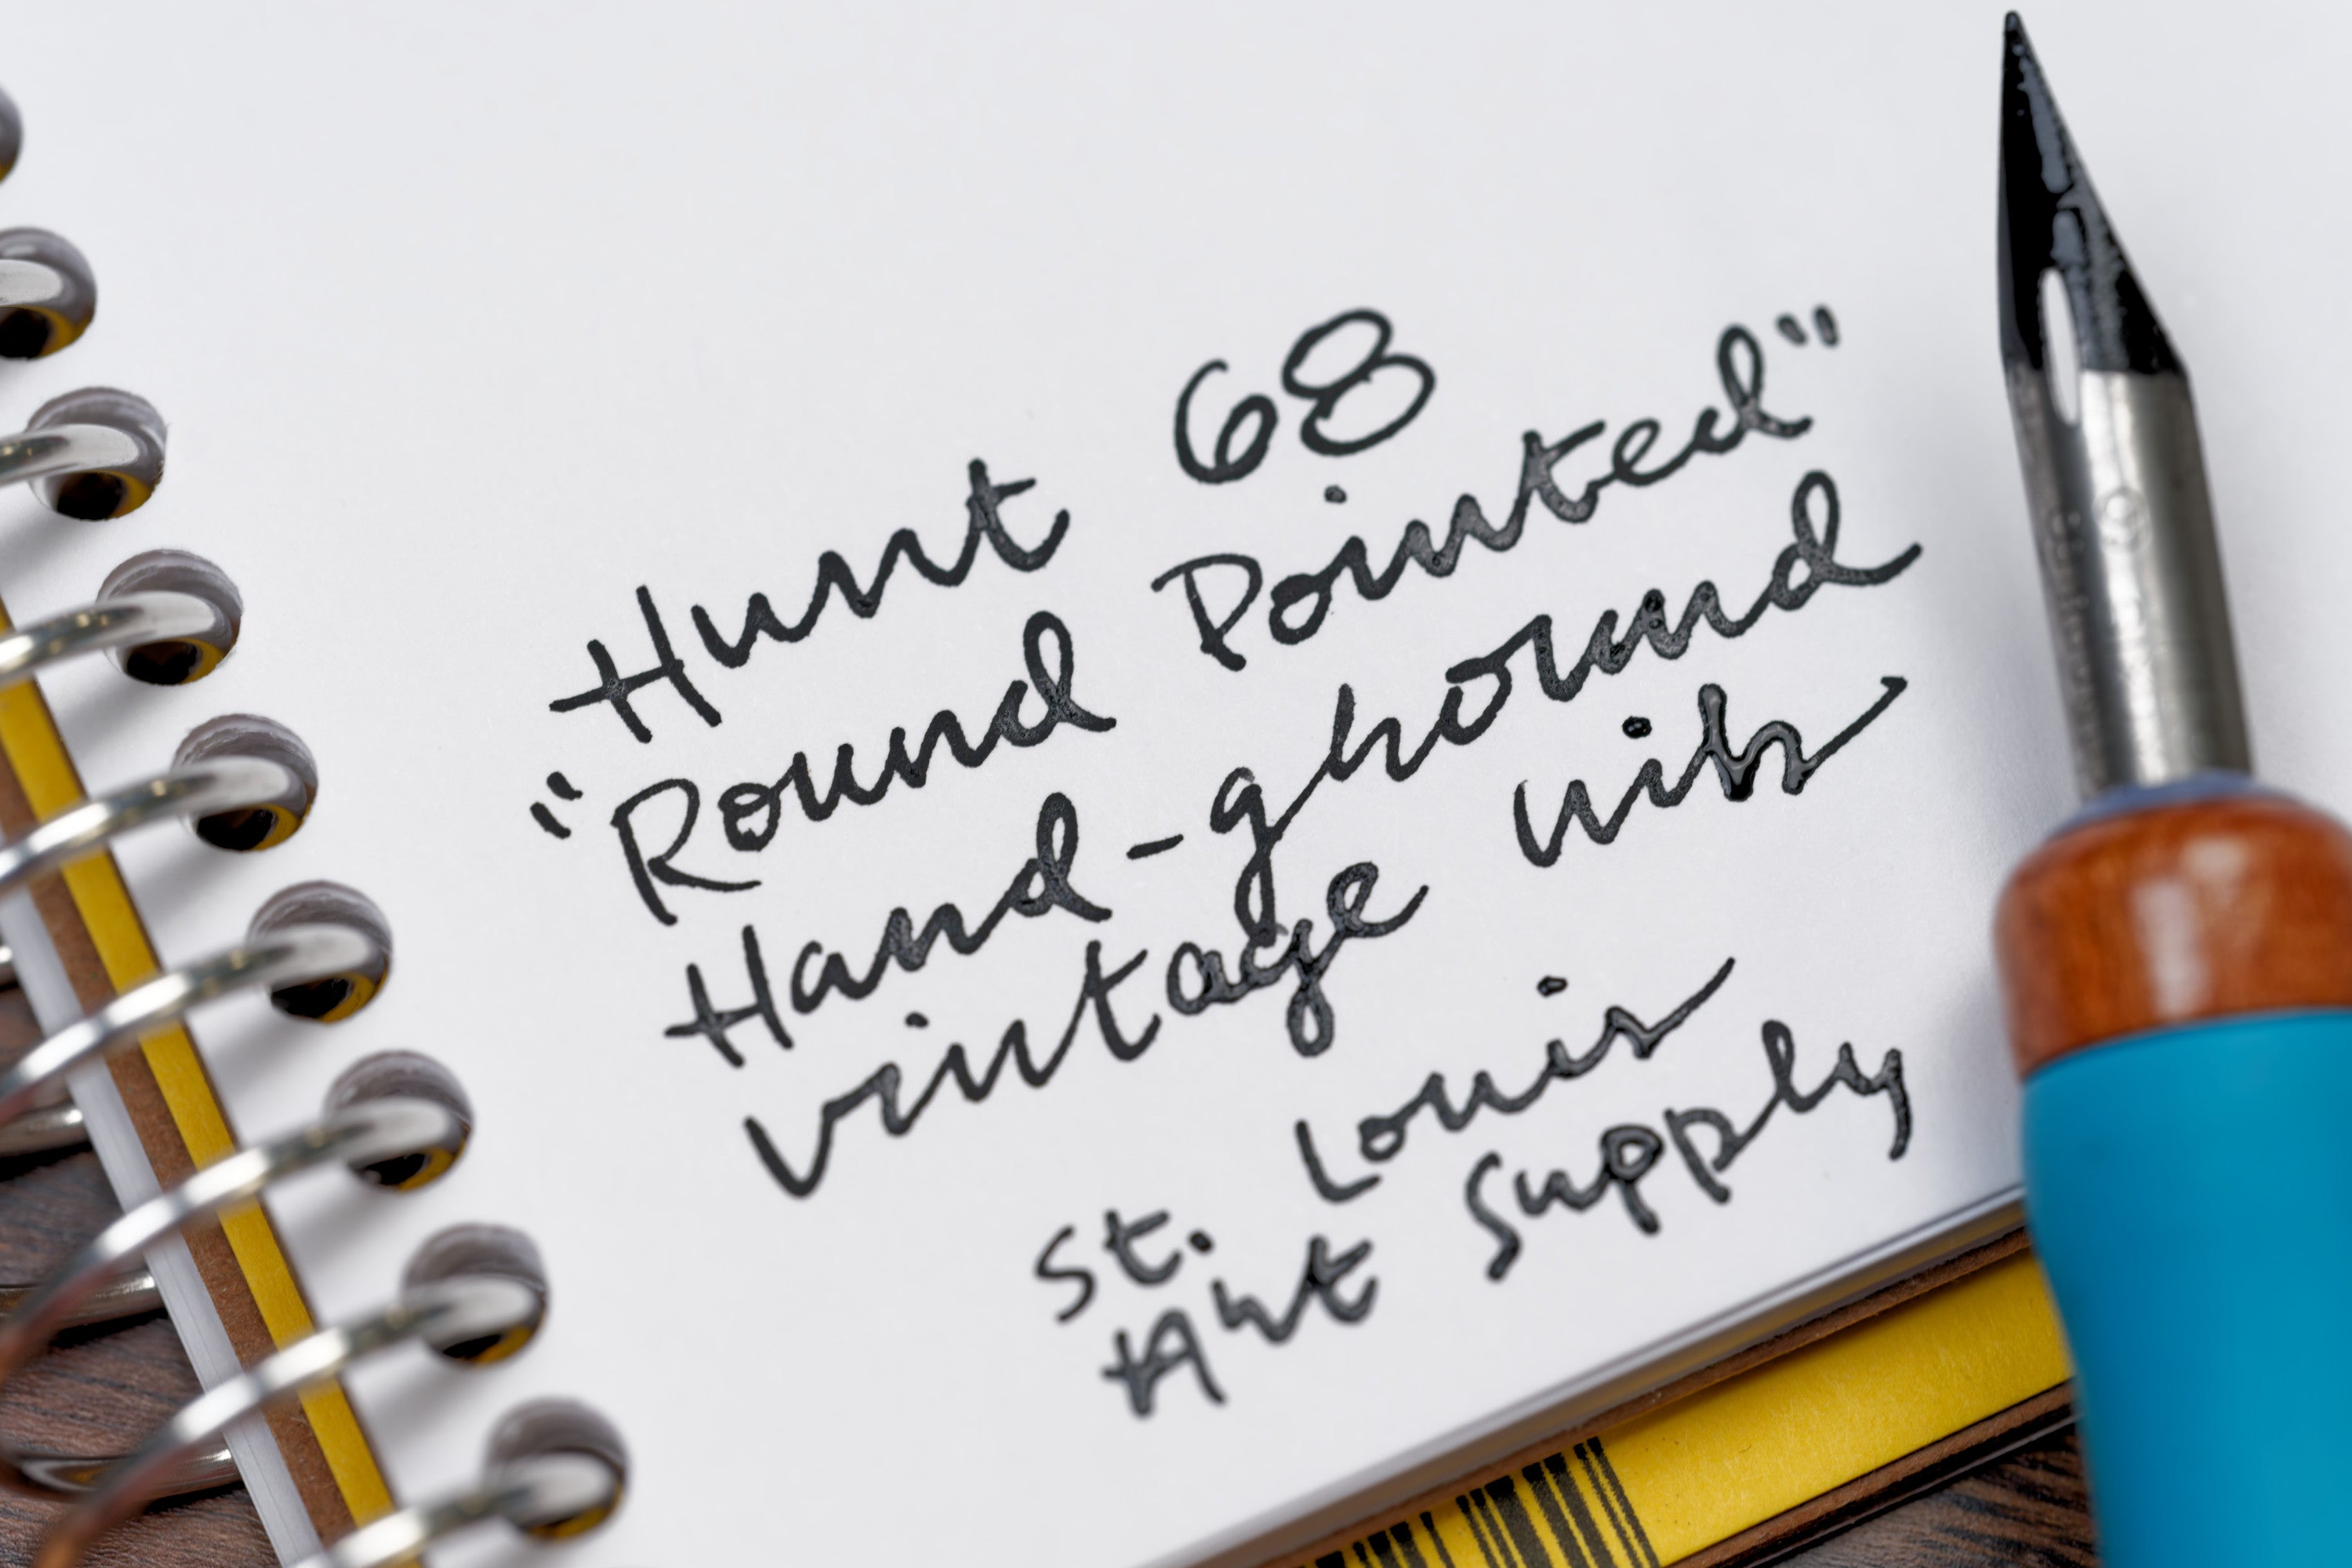 Hunt 68
"Round Pointed"
Hand-ground
vintage nib
St. Louis
Art Supply